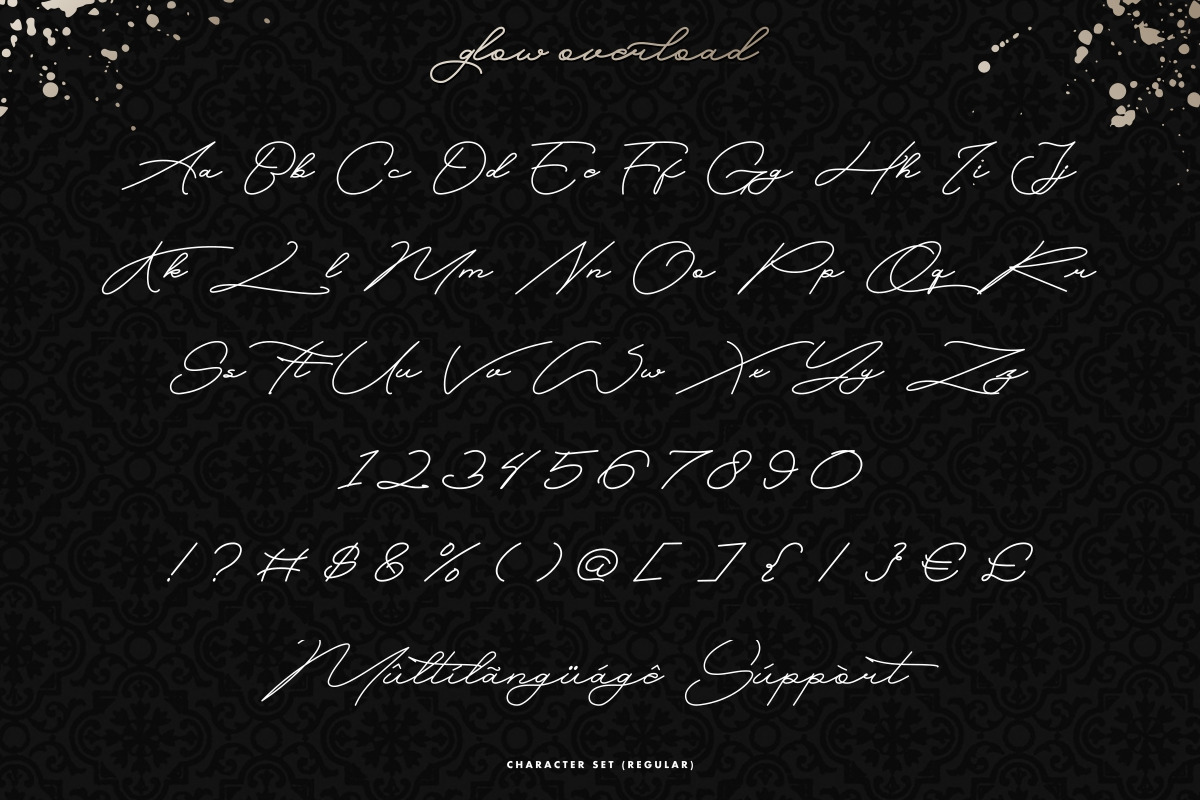 glow overload
Aa Bb Cc Dd Ee Ff Gg Hh Ii Jj
Kk Ll Mm Nn Oo Pp Qq Rr
Ss Tt Uu Vv Ww Xx Yy Zz
1 2 3 4 5 6 7 8 9 0
! ? # $ & % ( ) @ [ ] { / } € £
Mûltilãngüágê Súppòrt
CHARACTER SET (REGULAR)